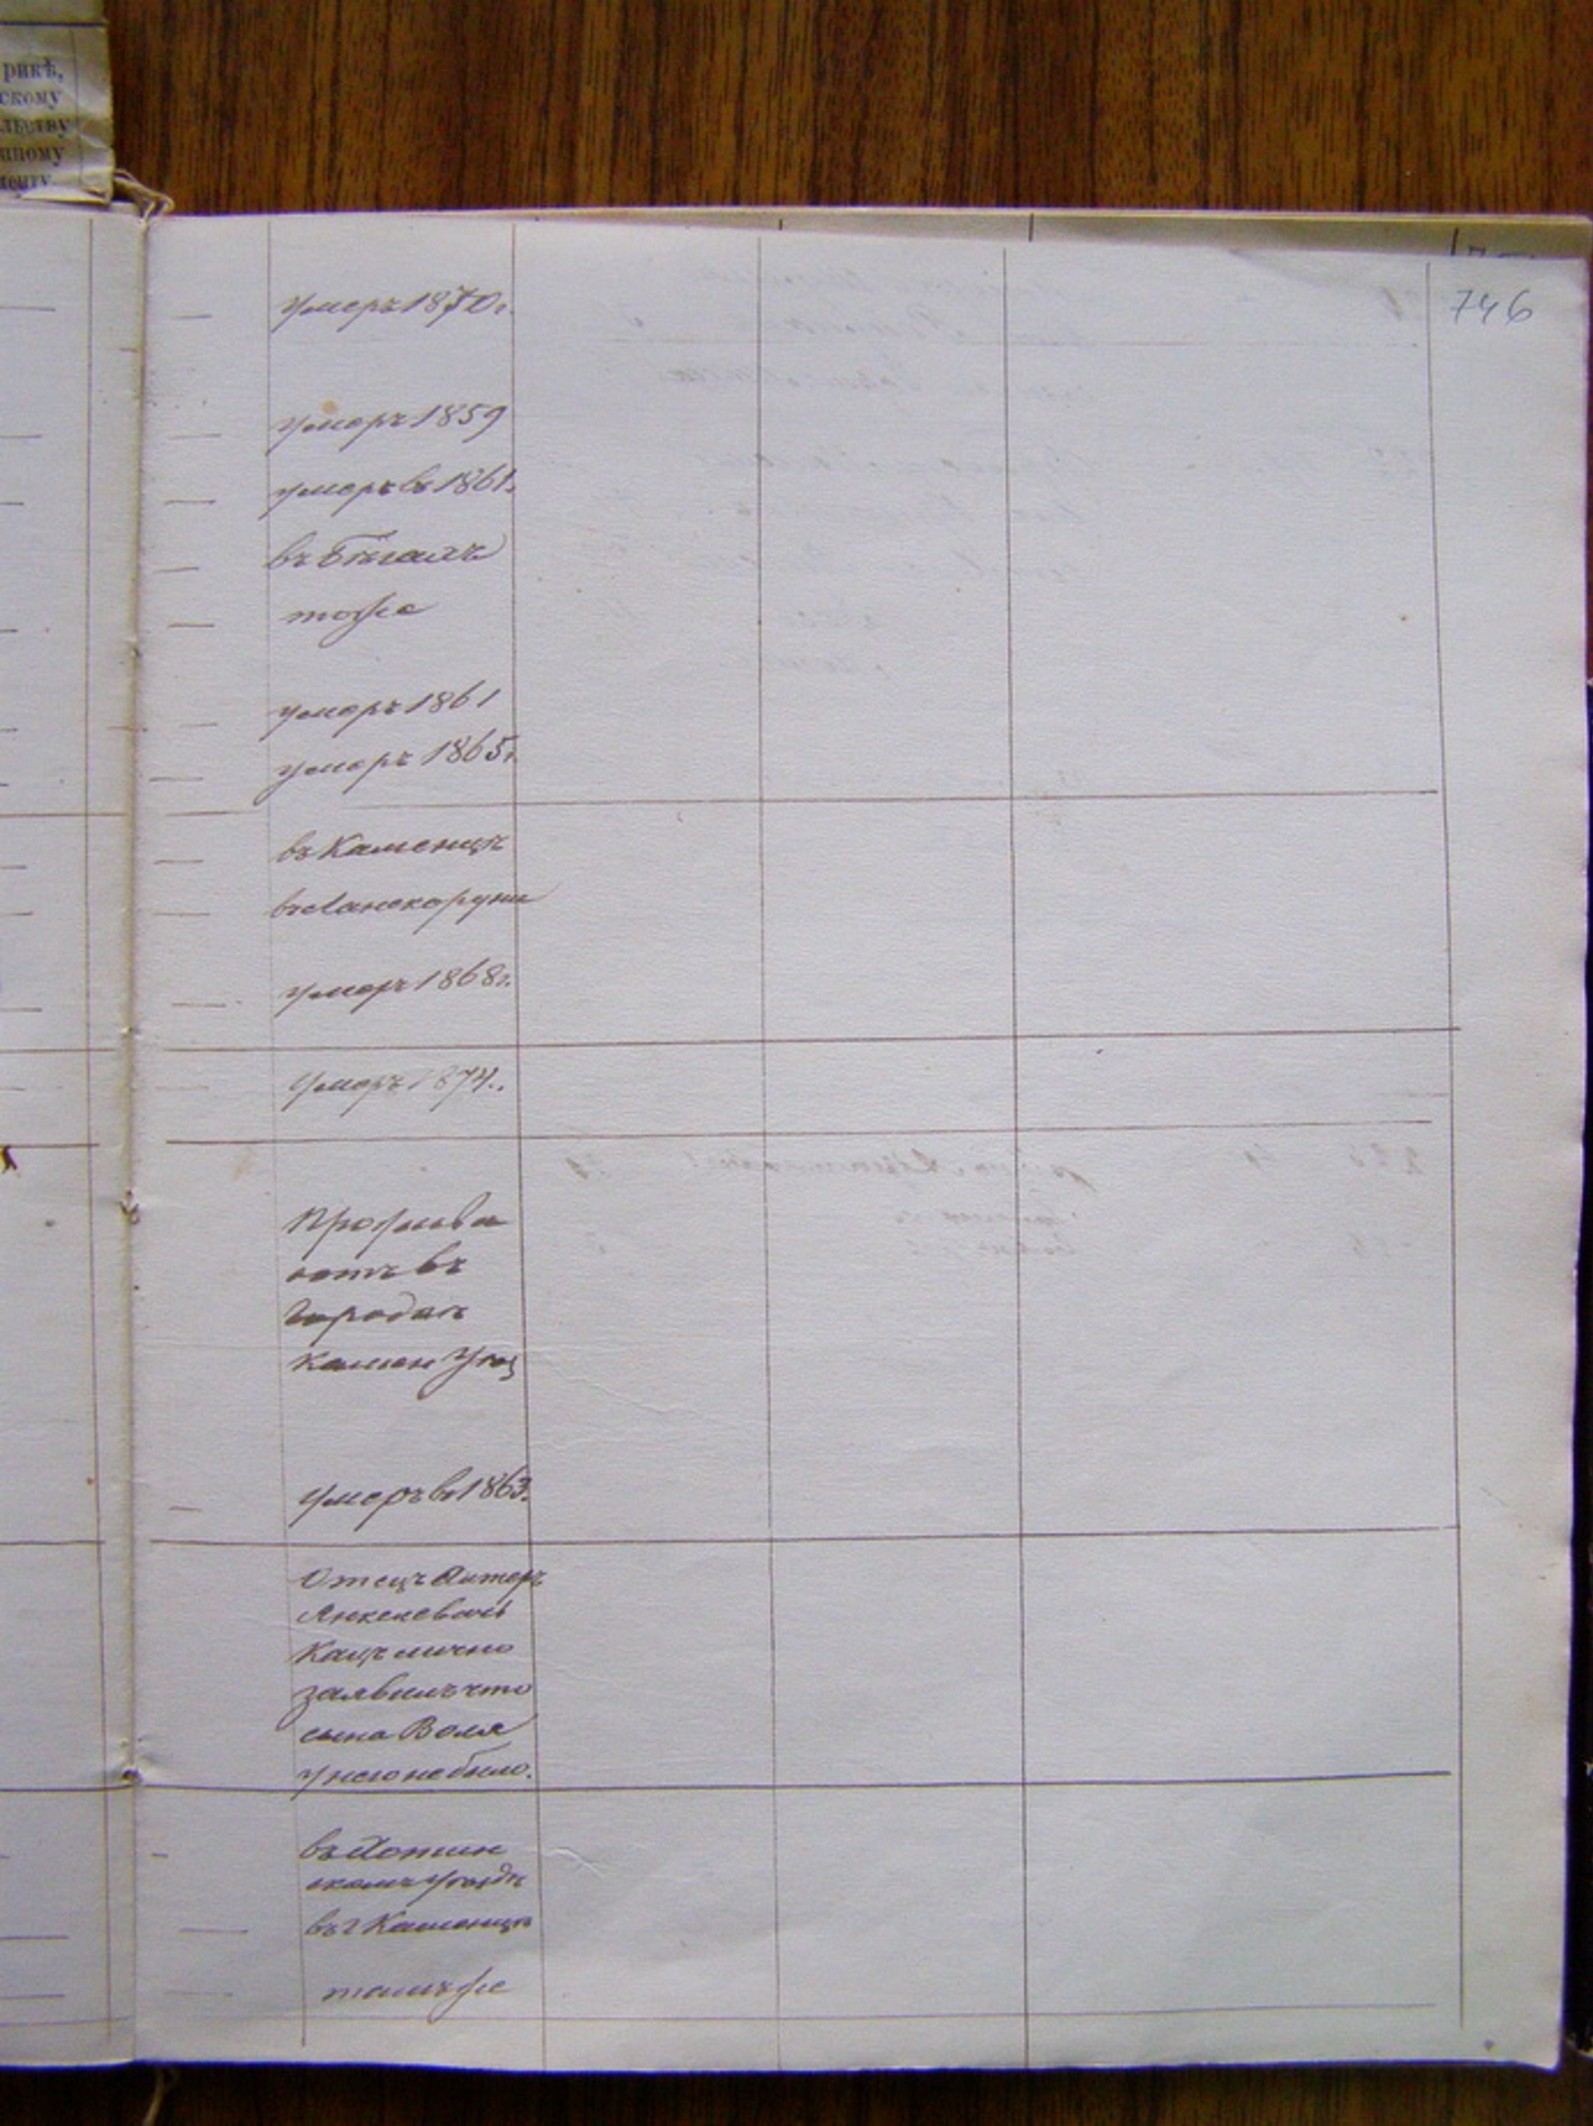 рикѣ,
скому
льству
нному
менту
746
умеръ 1870 г.
умеръ 1859
умеръ въ 1861.
въ Бѣгахъ
тоже
умеръ 1861
умеръ 1865 г.
въ Каменцѣ
въ Ланскоруни
умеръ 1868 г.
умеръ 1874.
Прожива
ютъ въ
Камен Уѣз
умеръ въ 1863.
Отецъ
Янкелевичъ
Кацъ лично
заявилъ что
сына Воля
у него не было.
въ Хотин
скомъ Уѣздѣ
въ г Каменцѣ
тамъ же